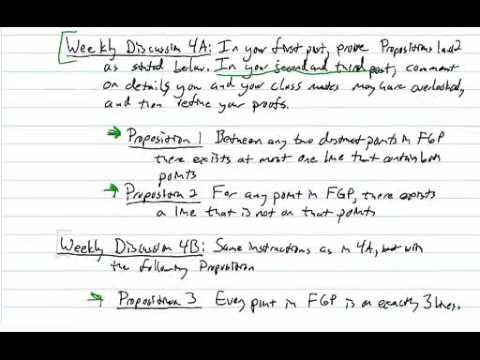 Weekly Discussion 4A: In your first post, prove Propositions 1 and 2
as stated below. In your second and third post, comment
on details you and your class mates may have overlooked,
and then refine your proofs.
→ Proposition 1 Between any two distinct points in FGP
there exists at most one line that contains both
points
→ Proposition 2 For any point in FGP, there exists
a line that is not on that points
Weekly Discussion 4B: Same instructions as in 4A, but with
the following Proposition
→ Proposition 3 Every point in FGP is on exactly 3 lines.